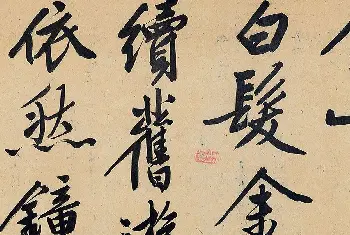 白髮余
續舊游
依然鐘